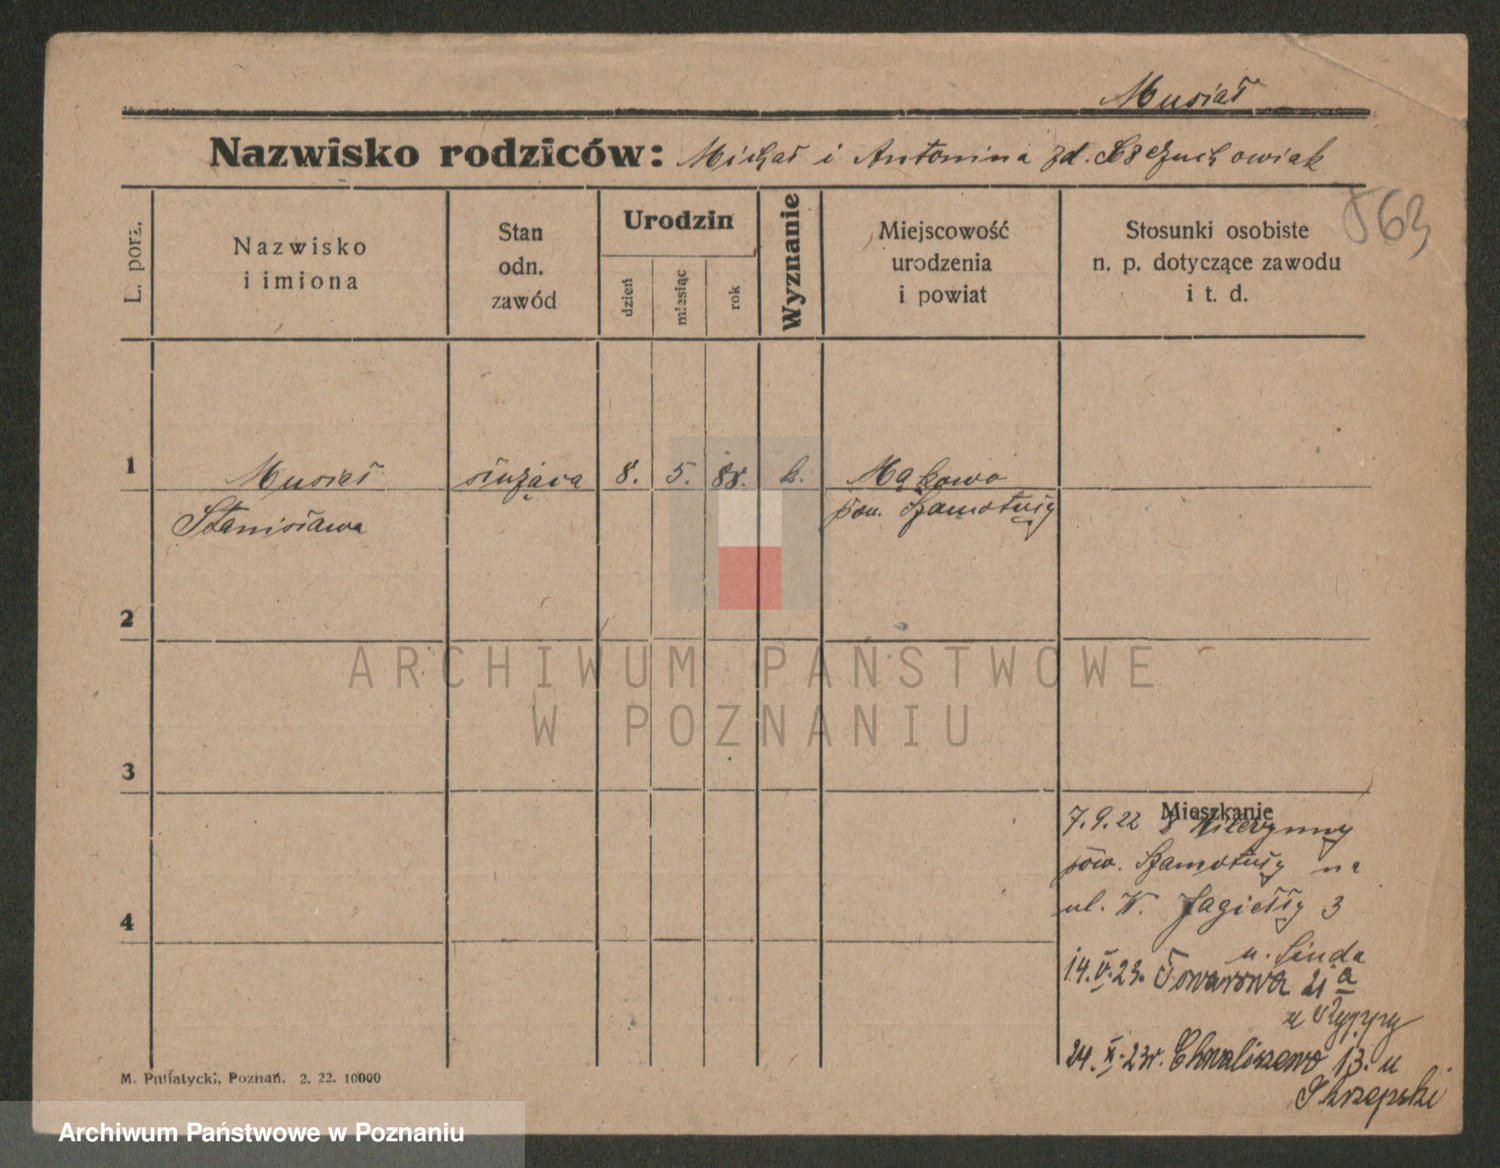 Musiał
Nazwisko rodziców: Michał i Antonina zd. Szczuchowiak
563
L. porz.
Nazwisko
i imiona
Stan
odn.
zawód
Urodzin
dzień
miesiąc
rok
Wyznanie
Miejscowość
urodzenia
i powiat
Stosunki osobiste
n. p. dotyczące zawodu
i t. d.
1
Musiał
Stanisława
służąca
8. 5. 88. k.
Mąkowo
pow. Szamotuły
2
3
4
Mieszkanie
7.9.22
pow. Szamotuły na
ul. W. Jagiełły 3
u. Linda
14.V.23. Towarowa 21 a
24.X.23r. Chwaliszewo 13. u
Skrzepski
M. Putiatycki, Poznań. 2. 22. 10000
ARCHIWUM PAŃSTWOWE
W POZNANIU
Archiwum Państwowe w Poznaniu